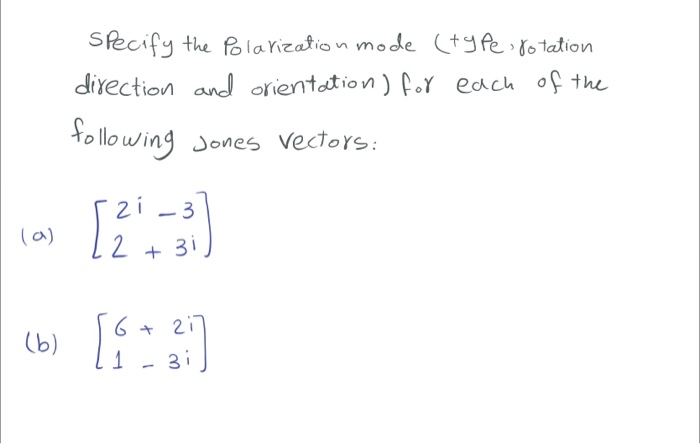 Specify the Polarization mode (type, rotation
direction and orientation) for each of the
following Jones vectors:
(a) [2i - 3
2 + 3i]
(b) [6 + 2i
1 - 3i]